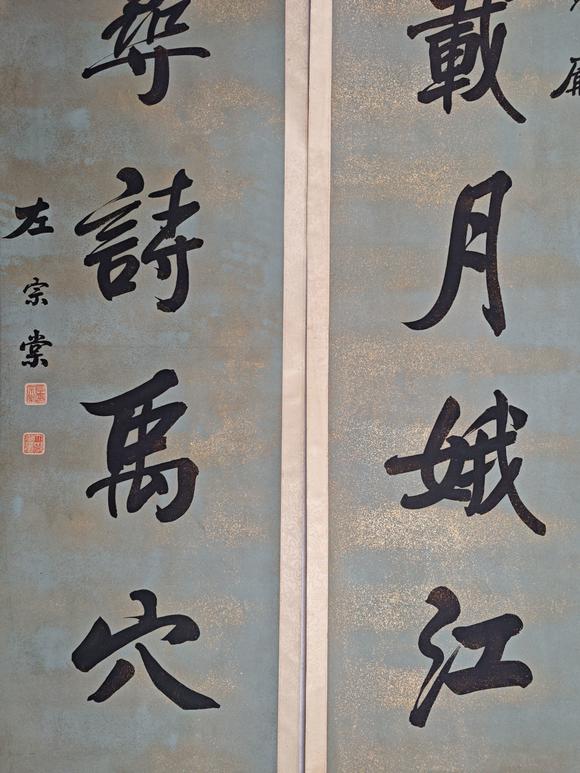 載月娥江
尋詩禹穴
左宗棠